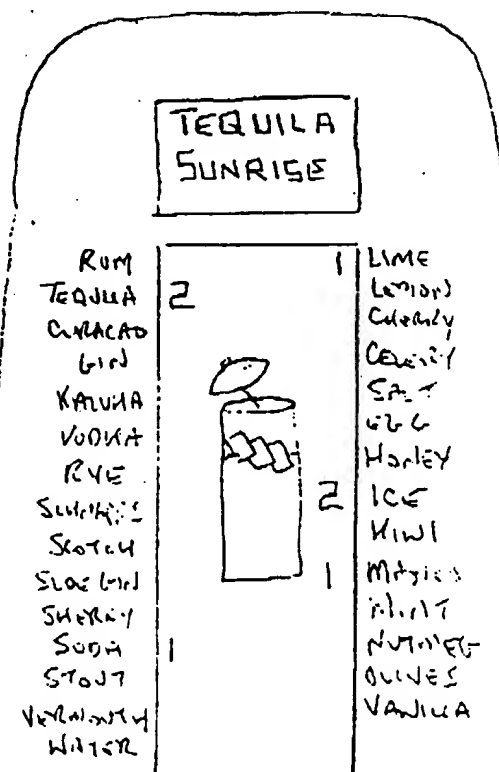 TEQUILA
SUNRISE
RUM
TEQUILA
CURACAO
GIN
KALUHA
VODKA
RYE
SCOTCH
SLOE GIN
SHERRY
SODA
STOUT
VERMOUTH
WATER
2
1
1
2
1
LIME
LEMON
CHERRY
CELERY
SALT
EGG
HONEY
ICE
KIWI
MINT
NUTMEG
OLIVES
VANILLA